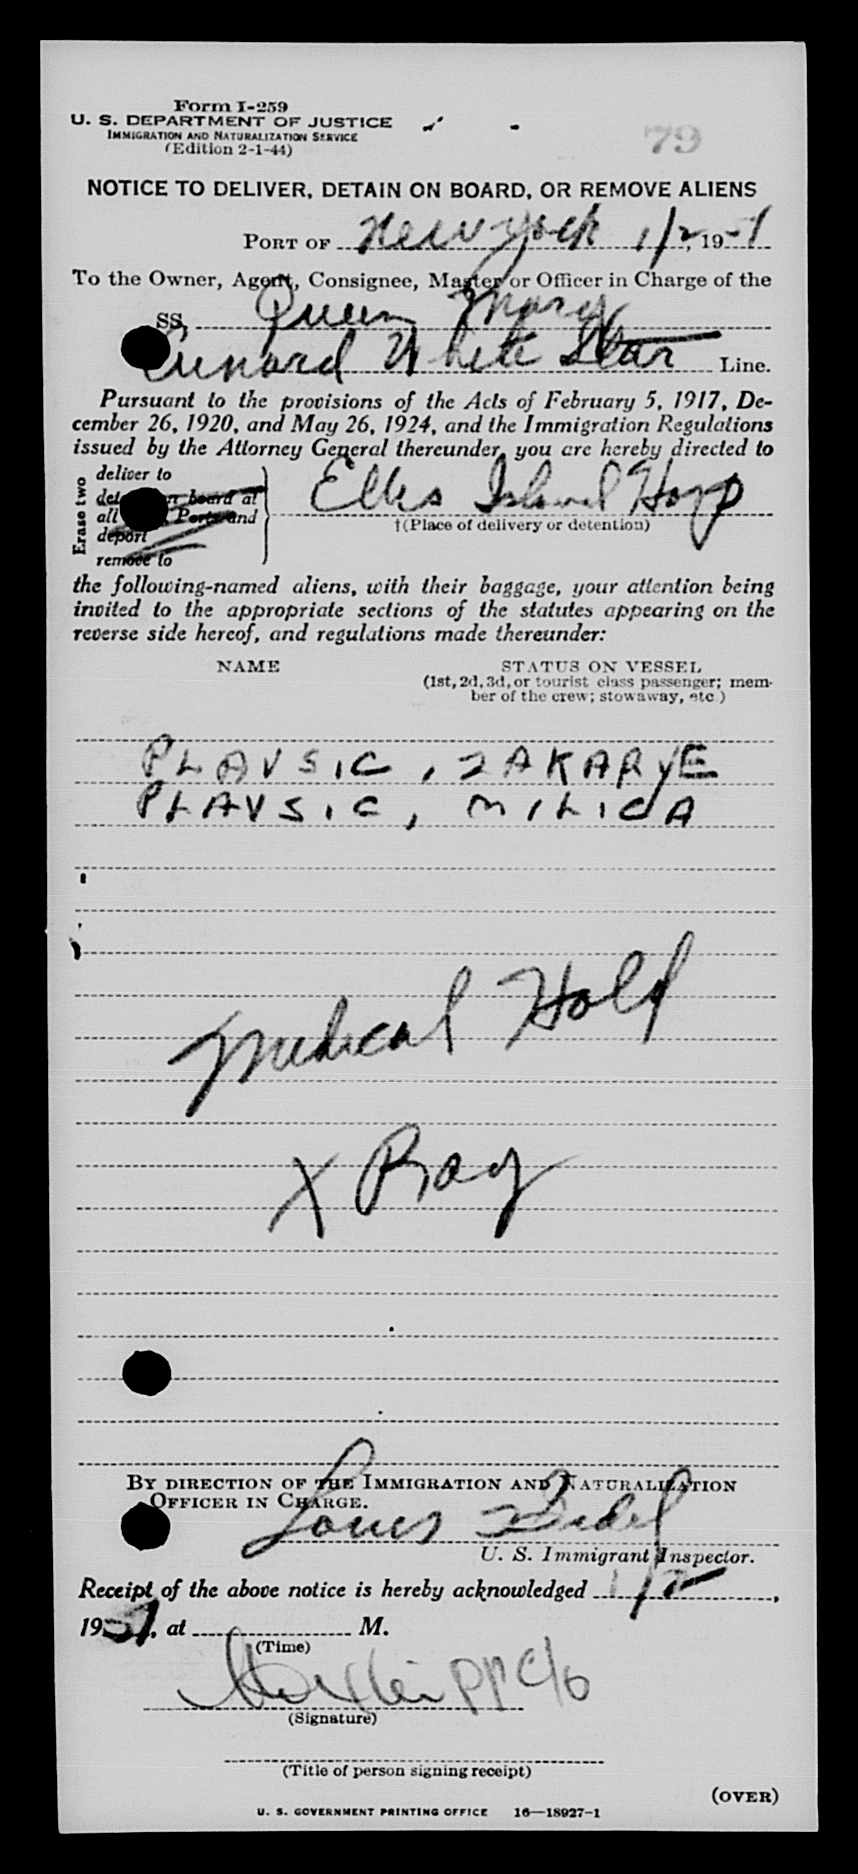 Form I-259
U. S. DEPARTMENT OF JUSTICE
IMMIGRATION AND NATURALIZATION SERVICE
(Edition 2-1-44)
79
NOTICE TO DELIVER, DETAIN ON BOARD, OR REMOVE ALIENS
PORT OF New York 1/2, 1951
To the Owner, Agent, Consignee, Master or Officer in Charge of the
SS. Queen Mary
Cunard White Star Line.
Pursuant to the provisions of the Acts of February 5, 1917, De-
cember 26, 1920, and May 26, 1924, and the Immigration Regulations
issued by the Attorney General thereunder, you are hereby directed to
Erase two
deliver to
on board at
all Ports and
deport
remove to
Ellis Island Hosp
†(Place of delivery or detention)
the following-named aliens, with their baggage, your attention being
invited to the appropriate sections of the statutes appearing on the
reverse side hereof, and regulations made thereunder:
NAME STATUS ON VESSEL
(1st, 2d, 3d, or tourist class passenger; mem-
ber of the crew; stowaway, etc.)
PLAVSIC, ZAKARYE
PLAVSIC, MILICA
Medical Hold
X Ray
BY DIRECTION OF THE IMMIGRATION AND NATURALIZATION
OFFICER IN CHARGE.
Louis
U. S. Immigrant Inspector.
Receipt of the above notice is hereby acknowledged 1/2,
1951, at M.
(Time)
(Signature)
(Title of person signing receipt)
(OVER)
U. S. GOVERNMENT PRINTING OFFICE 16—18927-1